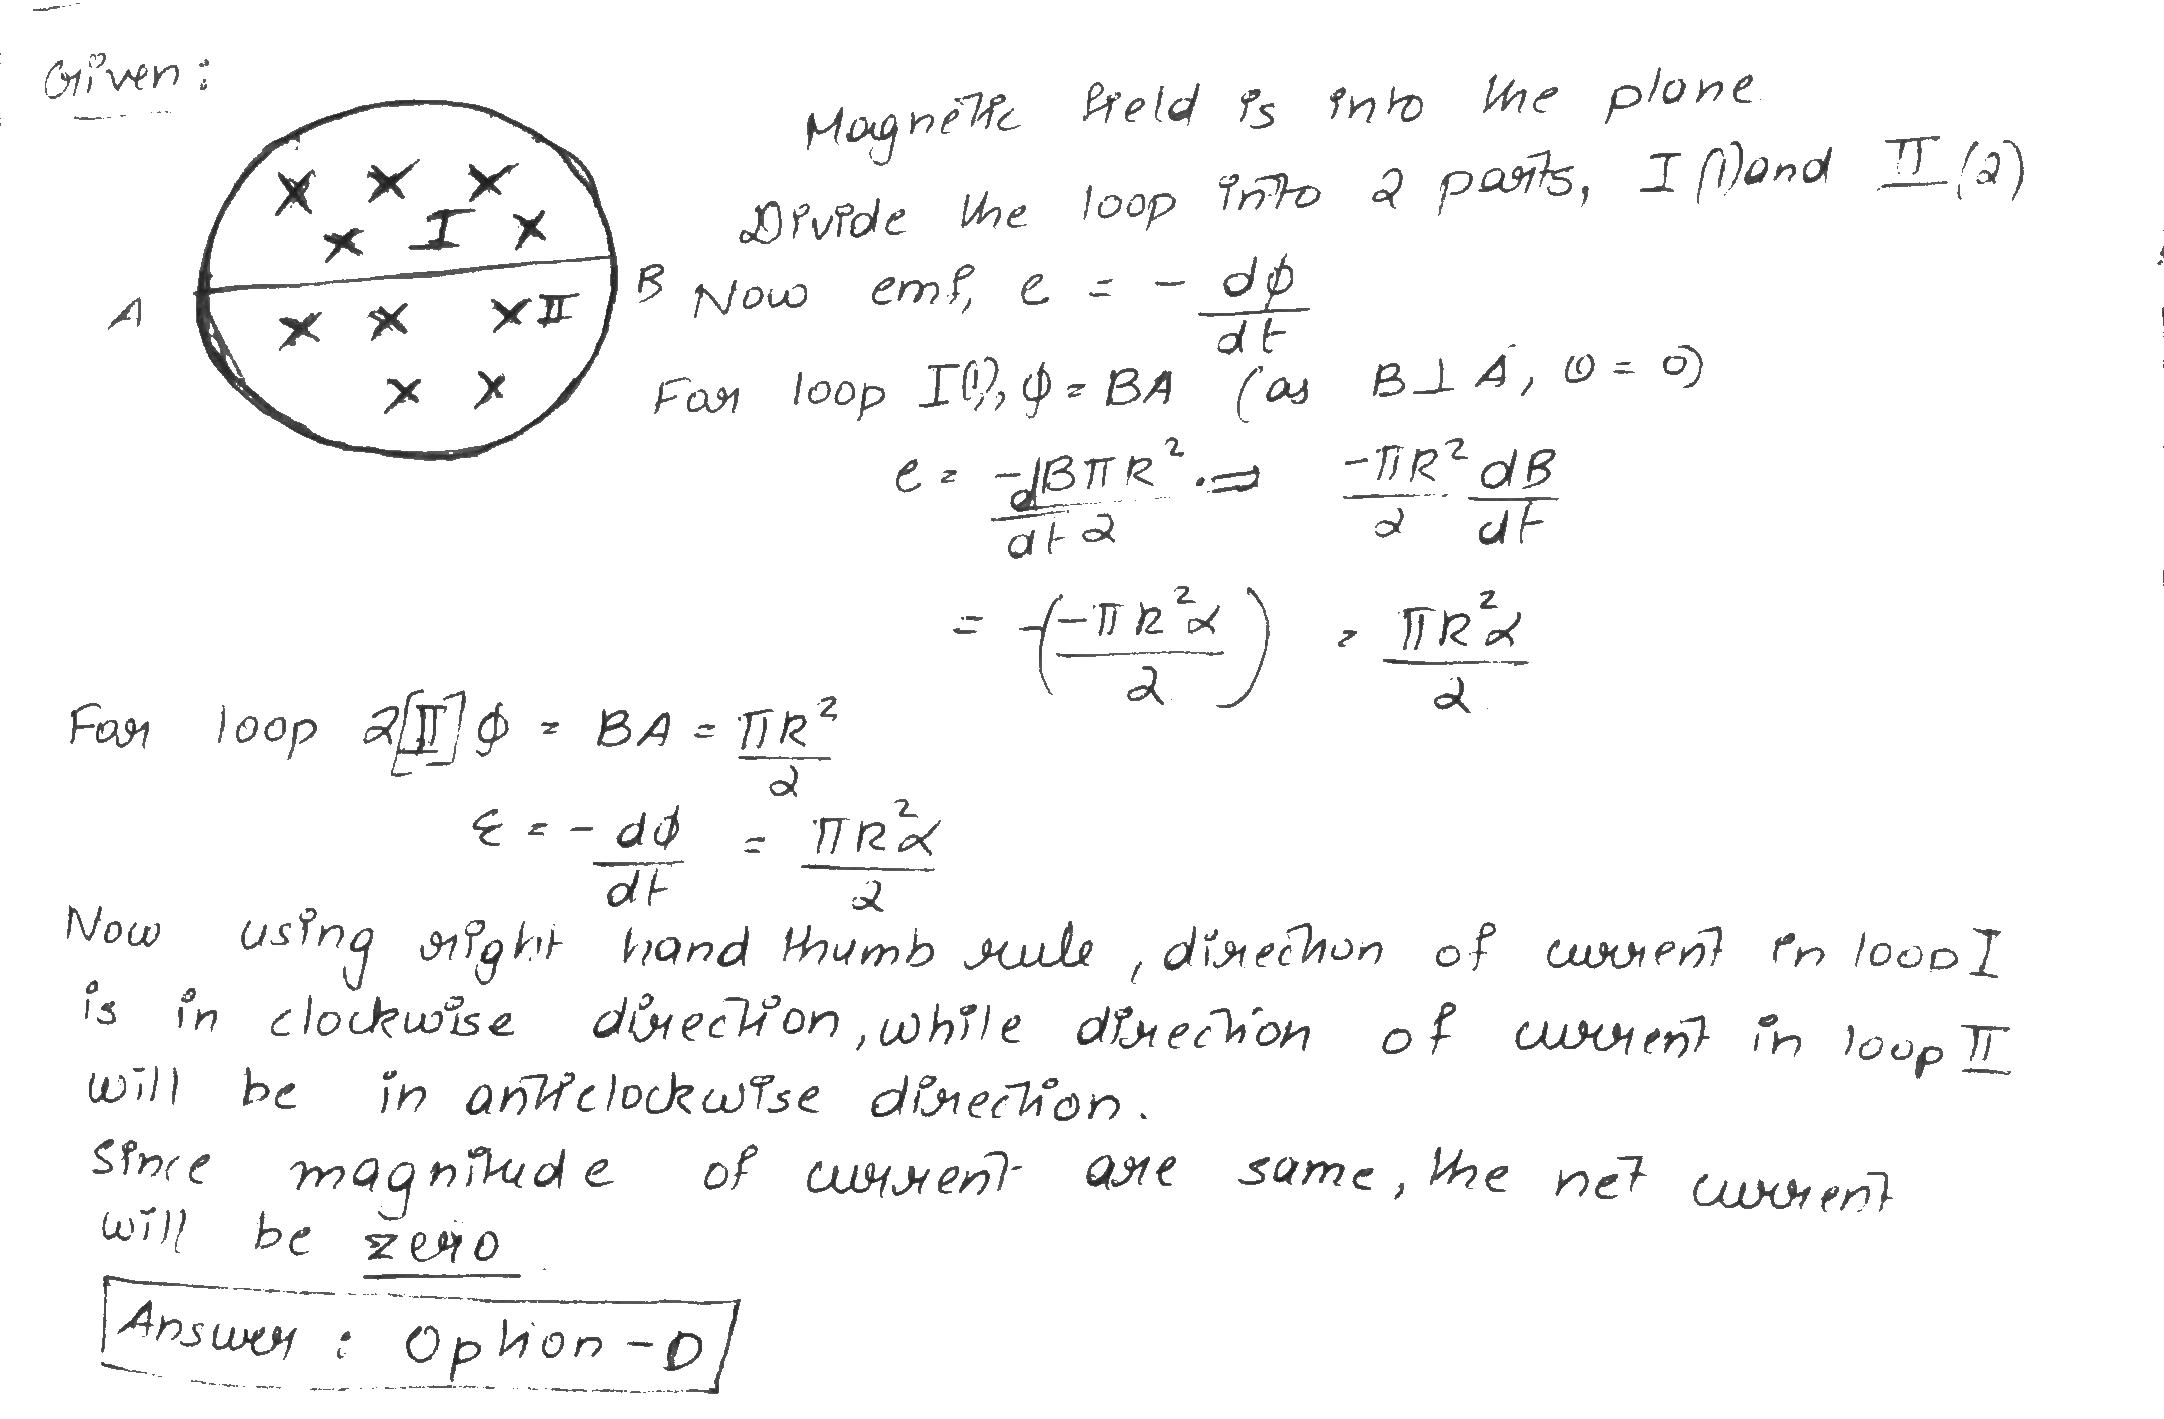 Given:
Magnetic field is into the plane.
Divide the loop into 2 parts, I (1) and II (2)
× × ×
× I ×
A B Now emf, e = - dφ/dt
× × × II
× ×
For loop I(1), φ = BA (as B ⊥ A, θ = 0)
e = -dBπR²/dt 2 ⇒ -πR²/2 dB/dt
= -(-πR²α/2) = πR²α/2
For loop 2[II] φ = BA = πR²/2
ε = - dφ/dt = πR²α/2
Now using right hand thumb rule, direction of current in loop I
is in clockwise direction, while direction of current in loop II
will be in anticlockwise direction.
Since magnitude of current are same, the net current
will be zero
Answer : Option - D